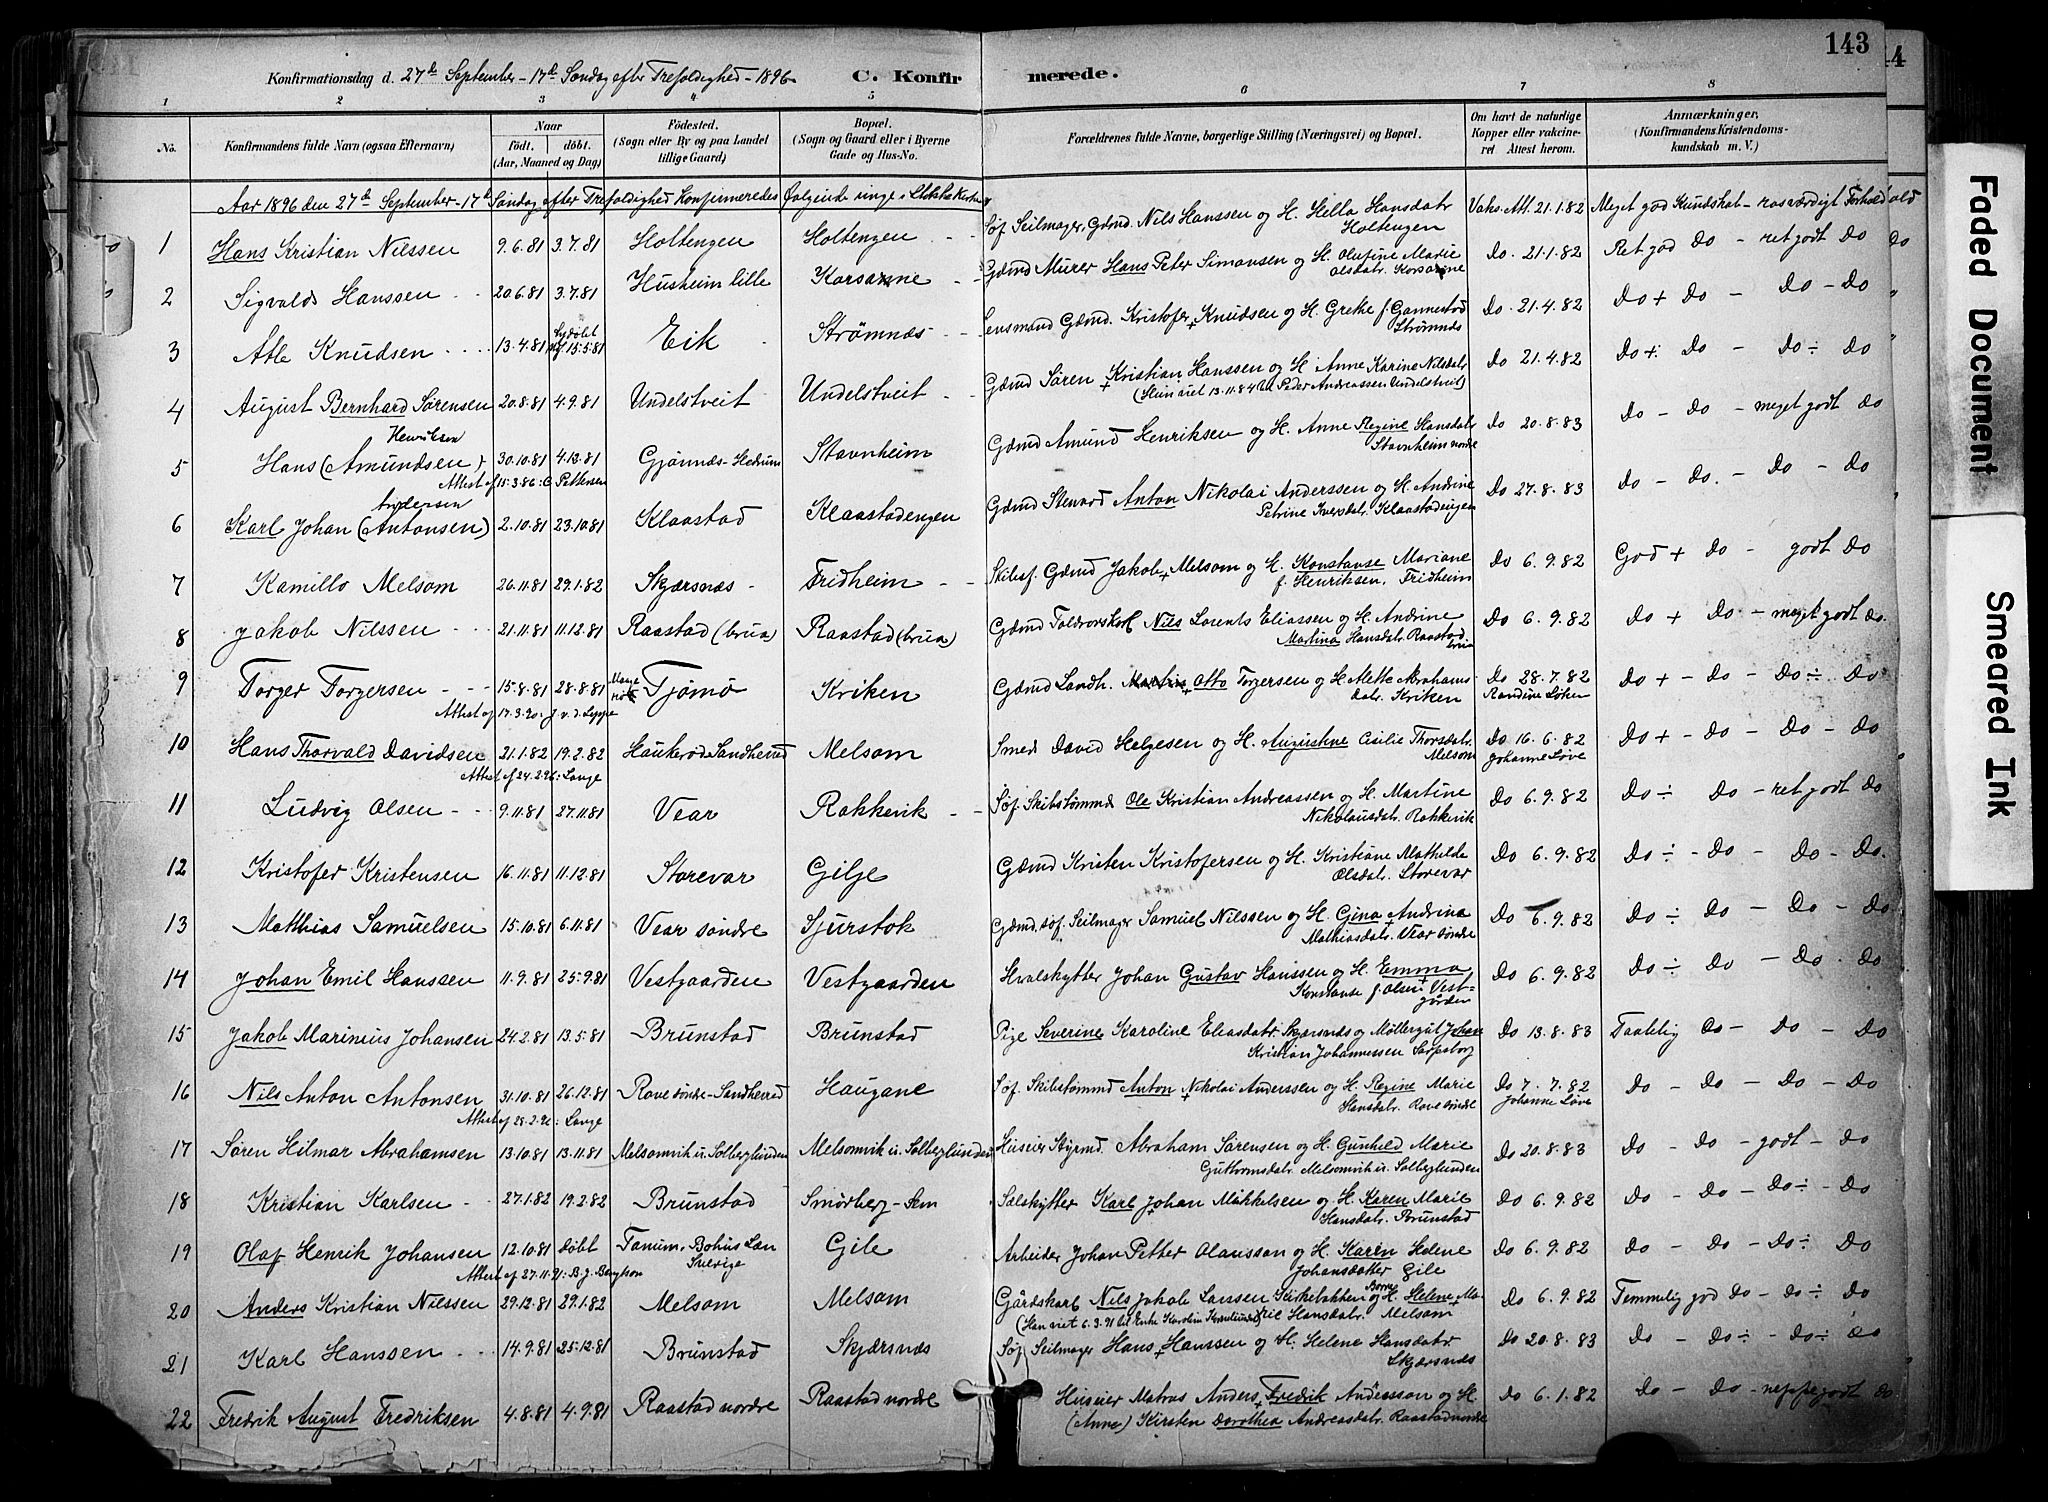 143
Konfirmationsdag d. 27de September - 17de Søndag efter Trefoldighed - 1896. C. Konfirmerede.
1 2 3 4 5 6 7 8
No. Konfirmandens fulde Navn (ogsaa Efternavn) Naar født. døbt. (Aar, Maaned og Dag) Fødested. (Sogn eller By og paa Landet tillige Gaard) Bopæl. (Sogn og Gaard eller i Byerne Gade og Hus-No. Forældrenes fulde Navne, borgerlige Stilling (Næringsvei) og Bopæl. Om havt de naturlige Kopper eller vakcineret Attest herom. Anmærkninger. (Konfirmandens Kristendomskundskab m. V.)
Aar 1896 den 27de September - 17de Søndag efter Trefoldighed Konfirmeredes Følgende unge i
1 Hans Kristian Nilssen 9.6.81 3.7.81 Holtengen Holtengen Søf. Seilmager, Gdmd. Nils Hanssen og H. Hella Hansdatr. Holtengen Vaks. Att. 21.1.82 Meget god Kundskab - rosværdigt Forhold
2 Sigvald Hanssen 20.6.81 3.7.81 Husheim lille Korsanne Gdmd Murer Hans Peter Simonsen og H. Olufine Marie Olsdatr. Korsanne Do. 21.1.82 Ret god Do - ret godt Do
3 Atle Knudsen 13.4.81 15.5.81 Eik Strømnæs Lensmand Gdmd. Kristofer Knudsen og H. Grethe f. Gannestad Strømnæs Do 21.4.82 Do + Do - Do - Do
4 August Bernhard Sørensen 20.8.81 4.9.81 Undelstveit Undelstveit Gdmd Søren Kristian Hanssen og H. Anne Karine Nilsdatr. (Hun viet 13.11.84 til Peder Andreassen Undelstveit) Do 21.4.82 Do ÷ Do - Do ÷ Do
5 Hans (Amundsen) Henriksen 30.10.81 4.12.81 Gjønnæs - Hedrum Stavnheim Gdmd Amund Henriksen og H. Anne Regine Hansdatr. Stavnheim nordre Do 20.8.83 Do - Do - meget godt Do
Attest af 15.3.86: C. Pettersen
6 Karl Johan (Antonsen) Andersen 2.10.81 23.10.81 Klaastad Klaastadengen Gdmd Steward Anton Nikolai Anderssen og H. Andrine Petrine Iversdatr. Klaastadengen Do 27.8.83 Do - Do. - Do - Do
7 Kamillo Melsom 26.11.81 29.1.82 Skjærsnæs Fridheim Skibsf. Gdmd Jakob Melsom og H. Konstanse Mariane f. Henriksen, Fridheim Do 6.9.82 God + Do - godt Do
8 Jakob Nilssen 21.11.81 11.12.81 Raastad (brua) Raastad (brua) Gdmd Nils Lorents Eliassen og H. Andrine Martina Hansdatr. Raastad brua Do 6.9.82 Do + Do - meget godt Do.
9 Torger Torgersen 15.8.81 28.8.81 Tjømø Kriken Gdmd Landh. Otto Torgersen og H. Mette Abrahamsdatr. Kriken Do 28.7.82 Randine Løken Do + - Do - Do ÷ Do
Attest af 17.3.90: J. v. d. Lippe
10 Hans Thorvald Davidsen 21.1.82 19.2.82 Haukerød Sandherred Melsom Smed David Helgesen og H. Augustine Cicilie Thorsdatr. Melsom Do 16.6.82 Johanne Løve Do + - Do - Do - Do
Attest af 24.2.96: Lange
11 Ludvig Olsen 9.11.81 27.11.81 Vear Rakkevik Søf. Skibstømmd Ole Kristian Andreassen og H. Martine Nikolausdatr. Rakkevik Do 6.9.82 Do ÷ Do - ret godt Do
12 Kristofer Kristensen 16.11.81 11.12.81 Storevar Gilje Gdmd Kristen Kristofersen og H. Kristiane Mathilde Olsdatr. Storevar Do 6.9.82 Do ÷ - Do - Do - Do.
13 Matthias Samuelsen 15.10.81 6.11.81 Vear søndre Sjurstok Gdmd, søf. Seilmager Samuel Nilssen og H. Gina Andrina Mathiasdatr. Vear søndre Do 6.9.82 Do ÷ Do - Do - Do.
14 Johan Emil Hanssen 11.9.81 25.9.81 Vestgaarden Vestgaarden Hvalskytter Johan Gustav Hanssen og H. Emma Konstanse f. Olsen Vestgården Do 6.9.82 Do ÷ Do - Do - Do
15 Jakob Marinius Johansen 24.2.81 13.5.81 Brunstad Brunstad Pige Severine Karoline Eliasdatr. Skjærsnæs og Møllergut Johan Kristian Johannessen Sarpsborg Do 13.8.83 Taalelig Do - Do - Do
16 Nils Anton Antonsen 31.10.81 26.12.81 Rove søndre - Sandherred Haugane Søf. Skibstømmd Anton Nikolai Anderssen og H. Regine Marie Hansdatr. Rove søndre Do 7.7.82 Johanne Løve Do - Do - Do - Do
Attest af 28.2.96: Lange
17 Søren Hilmar Abrahamsen 13.10.81 13.11.81 Melsomvik u. Solberglunden Melsomvik u. Solberglunden Huseier Styrmd. Abraham Sørensen og H. Gunhild Marie Guttormsdatr. Melsomvik u. Solberglunden Do 20.8.83 Do - Do - godt - Do
18 Kristian Karlsen 27.1.82 19.2.82 Brunstad Smørberg - Sem Sælskytter Karl Johan Mikkelsen og H. Karen Marie Hansdatr. Brunstad Do 6.9.82 Do - Do - Do ÷ - Do
19 Olaf Henrik Johansen 12.10.81 døbt Tanum, Bohus Læn Sverige Gile Arbeider Johan Petter Olausson og H. Karin Helene Johansdatter Gile Do 6.9.82 Do - Do - Do ÷ Do
Attest af 27.11.91: B. J. Bengtson
20 Anders Kristian Nilssen 29.12.81 29.1.82 Melsom Melsom Gårdskarl Nils Jakob Larssen og H. Helene Marie Hansdatr. Melsom Do 6.9.82 Temmelig god Do - Do ÷ Do
21 Karl Hanssen 14.9.81 25.12.81 Brunstad Skjærsnæs Søf. Seilmager Hans Hanssen og H. Helene Hansdatr. Skjærsnæs Do 20.8.83 Do - Do ÷ - Do ÷ Do
22 Fredrik August Fredriksen 4.8.81 4.9.81 Raastad nordre Raastad nordre Huseier Matros Anders Fredrik Andersson og H. (Anne) Kirsten Dorothea Andreasdatr. Raastad nordre Do 6.1.82 Do - Do - neppe godt Do
Faded Document
Smeared Ink